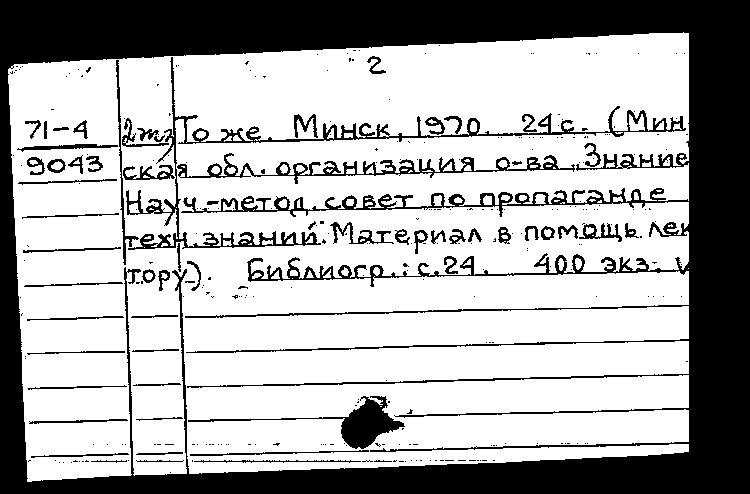 2
71-4 2 экз То же. Минск, 1970. 24 с. (Мин
9043 ская обл. организация о-ва „Знание
Науч.-метод. совет по пропаганде
техн. знаний. Материал в помощь лек
тору). Библиогр.: с. 24. 400 экз.